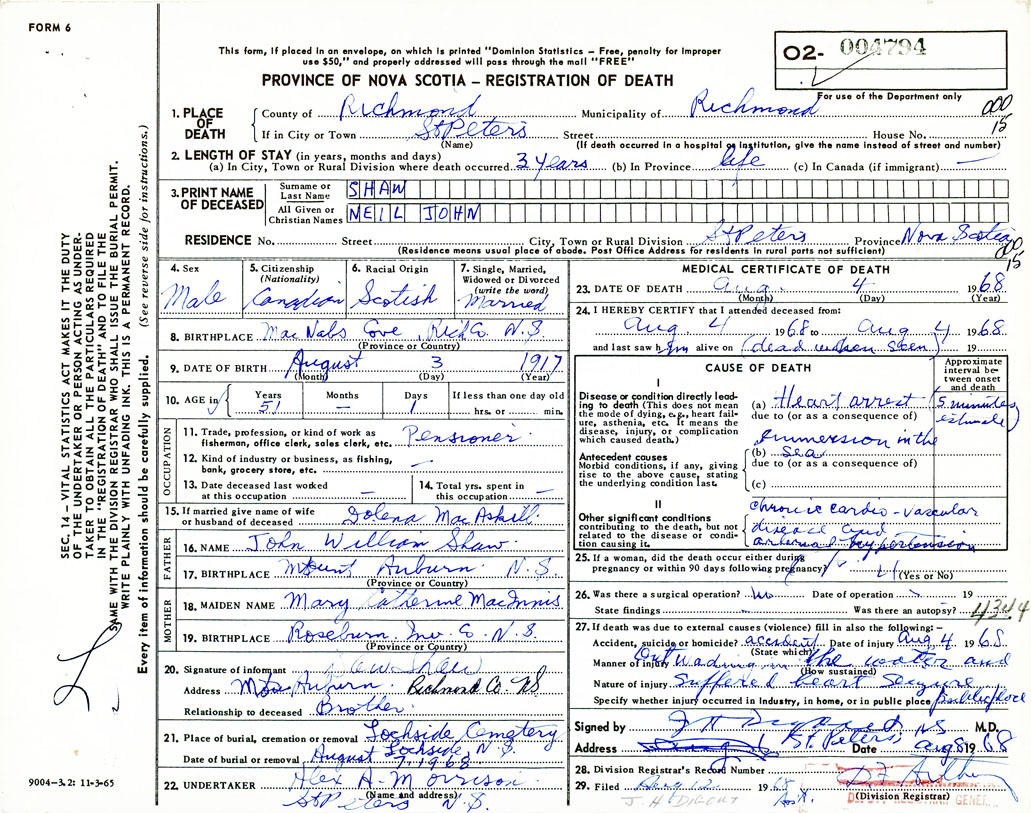 FORM 6
This form, if placed in an envelope, on which is printed "Dominion Statistics – Free, penalty for improper
use $50," and properly addressed will pass through the mail "FREE"
PROVINCE OF NOVA SCOTIA – REGISTRATION OF DEATH
O2- 004794
For use of the Department only
000
15
1. PLACE OF DEATH
County of Richmond Municipality of Richmond
If in City or Town St Peters Street House No.
(Name) (If death occurred in a hospital or institution, give the name instead of street and number)
2. LENGTH OF STAY (in years, months and days)
(a) In City, Town or Rural Division where death occurred 3 years (b) In Province life (c) In Canada (if immigrant) —
3. PRINT NAME OF DECEASED
Surname or Last Name SHAW
All Given or Christian Names NEIL JOHN
RESIDENCE No. Street City, Town or Rural Division St Peters Province Nova Scotia
(Residence means usual place of abode. Post Office Address for residents in rural parts not sufficient)
000
15
SEC. 14 – VITAL STATISTICS ACT MAKES IT THE DUTY
OF THE UNDERTAKER OR PERSON ACTING AS UNDER-
TAKER TO OBTAIN ALL THE PARTICULARS REQUIRED
IN THE "REGISTRATION OF DEATH" AND TO FILE THE
SAME WITH THE DIVISION REGISTRAR WHO SHALL ISSUE THE BURIAL PERMIT.
WRITE PLAINLY WITH UNFADING INK. THIS IS A PERMANENT RECORD.
Every item of information should be carefully supplied. (See reverse side for instructions.)
4. Sex Male
5. Citizenship (Nationality) Canadian
6. Racial Origin Scotish
7. Single, Married, Widowed or Divorced (write the word) Married
8. BIRTHPLACE Mac Nabs Cove, Rich Co. N.S.
(Province or Country)
9. DATE OF BIRTH August 3 1917
(Month) (Day) (Year)
10. AGE in Years 51 Months — Days 1 If less than one day old hrs. or min.
OCCUPATION
11. Trade, profession, or kind of work as
fisherman, office clerk, sales clerk, etc. Pensioner
12. Kind of industry or business, as fishing,
bank, grocery store, etc. —
13. Date deceased last worked
at this occupation —
14. Total yrs. spent in
this occupation —
15. If married give name of wife
or husband of deceased Dolena MacAskill
FATHER
16. NAME John William Shaw
17. BIRTHPLACE Mount Auburn N.S.
(Province or Country)
MOTHER
18. MAIDEN NAME Mary Catherine MacInnis
19. BIRTHPLACE Roseburn Inv. Co. N.S.
(Province or Country)
20. Signature of informant Shaw
Address Mt. Auburn Richmond Co. NS.
Relationship to deceased Brother
21. Place of burial, cremation or removal Lochside Cemetery
Lochside, N.S.
Date of burial or removal August 7, 1968
22. UNDERTAKER Alex A. Morrison
(Name and address)
St Peters N.S.
9004–3.2: 11-3-65
MEDICAL CERTIFICATE OF DEATH
23. DATE OF DEATH Aug. 4 1968
(Month) (Day) (Year)
24. I HEREBY CERTIFY that I attended deceased from:
Aug. 4 1968 to Aug 4 1968
and last saw him alive on (dead when seen) 19
CAUSE OF DEATH
Approximate interval between onset and death
I
Disease or condition directly lead-
ing to death (This does not mean
the mode of dying, e.g., heart fail-
ure, asthenia, etc. It means the
disease, injury, or complication
which caused death.)
(a) Heart arrest (5 minutes estimate)
due to (or as a consequence of)
Immersion in the
(b) sea
due to (or as a consequence of)
(c)
Antecedent causes
Morbid conditions, if any, giving
rise to the above cause, stating
the underlying condition last.
II
Other significant conditions
contributing to the death, but not
related to the disease or condi-
tion causing it.
chronic cardio-vascular
disease and
arterial hypertension
25. If a woman, did the death occur either during
pregnancy or within 90 days following pregnancy?
(Yes or No)
26. Was there a surgical operation? no Date of operation 19
State findings Was there an autopsy?
4344
27. If death was due to external causes (violence) fill in also the following:–
Accident, suicide or homicide? accident Date of injury Aug 4 1968
(State which)
Manner of injury Out Wading in the water and
(How sustained)
Nature of injury Suffered heart seizure
Specify whether injury occurred in Industry, in home, or in public place public place
Signed by M.D.
Address St. Peters, N.S. Date Aug 8 1968
28. Division Registrar's Record Number
29. Filed Aug 12 1968
(Division Registrar)